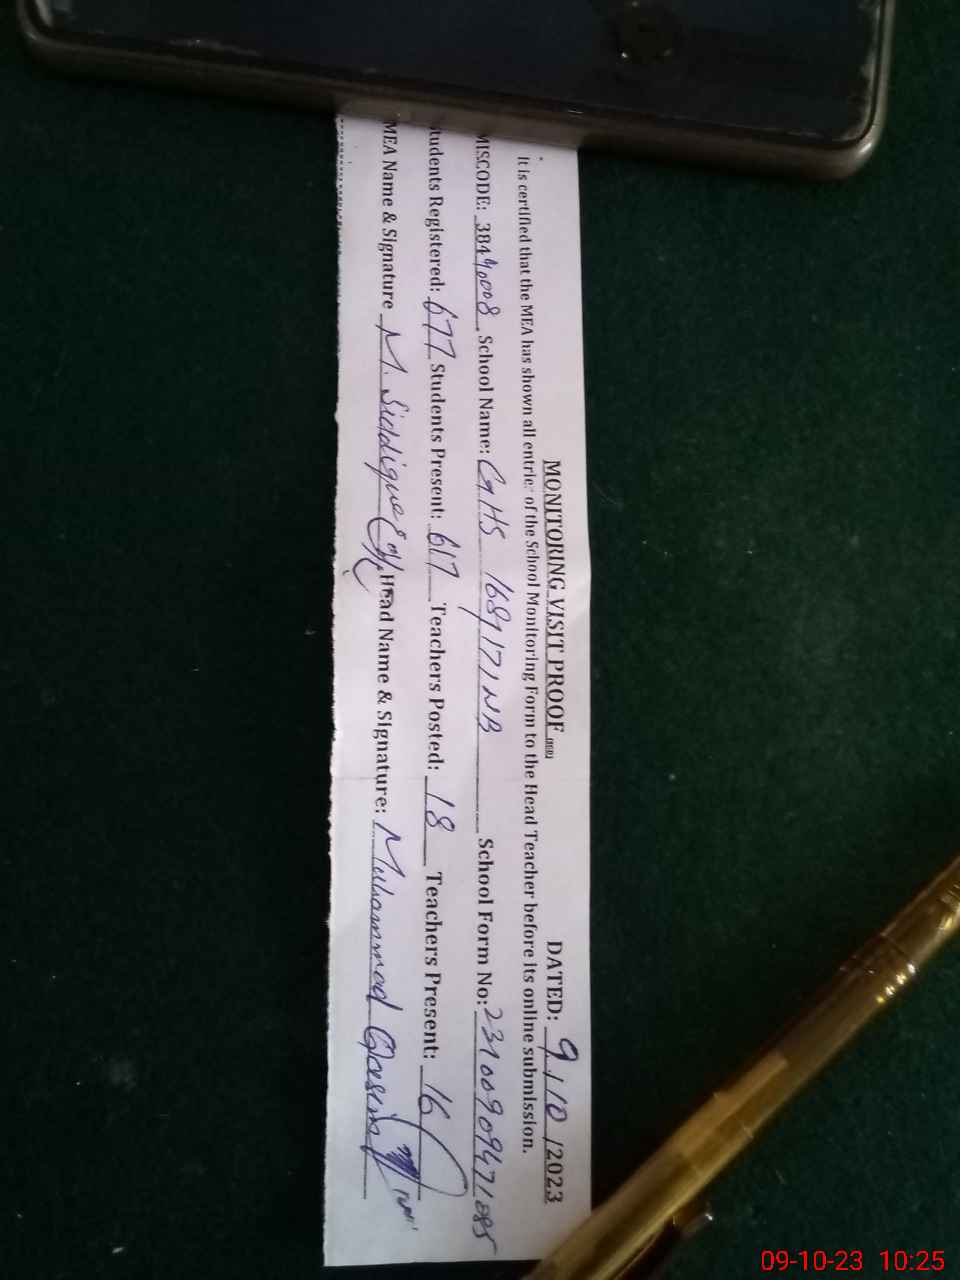 MONITORING VISIT PROOF DATED: 9/10/2023
It is certified that the MEA has shown all entries of the School Monitoring Form to the Head Teacher before its online submission.
MISCODE: 38440008 School Name: GHS 168/171NB School Form No:
Students Registered: 677 Students Present: 617 Teachers Posted: 18 Teachers Present: 16
MEA Name & Signature M. Siddique Head Name & Signature: Muhammad Qasim
09-10-23 10:25